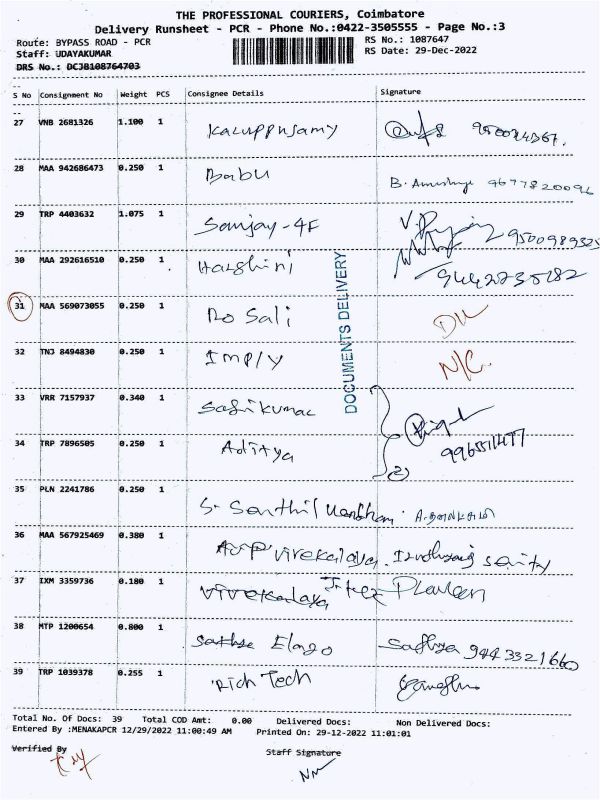 THE PROFESSIONAL COURIERS, Coimbatore
Delivery Runsheet - PCR - Phone No.:0422-3505555 - Page No.:3
Route: BYPASS ROAD - PCR RS No.: 1087647
Staff: UDAYAKUMAR RS Date: 29-Dec-2022
DRS No.: DCJB108764703
S No Consignment No Weight PCS Consignee Details Signature
27 VNB 2681326 1.100 1 Karuppusamy
28 MAA 942686473 0.250 1 Babu 9677820096
29 TRP 4403632 1.075 1 Sanjay-4F 9500989325
30 MAA 292616510 0.250 1 Harshini 9442735282
DOCUMENTS DELIVERY
31 MAA 569073055 0.250 1 Ro Sali DL
32 TNJ 8494830 0.250 1 Imply N/C.
33 VRR 7157937 0.340 1 Sasikumar
34 TRP 7896505 0.250 1 Aditya 2
35 PLN 2241786 0.250 1 S. Senthil
36 MAA 567925469 0.380 1
37 IXM 3359736 0.180 1 Vivekalaya
38 MTP 1200654 0.800 1 Sathya Elango Sathya 9443321660
39 TRP 1039378 0.255 1 Rich Tech
Total No. Of Docs: 39 Total COD Amt: 0.00 Delivered Docs: Non Delivered Docs:
Entered By :MENAKAPCR 12/29/2022 11:00:49 AM Printed On: 29-12-2022 11:01:01
Verified By Staff Signature